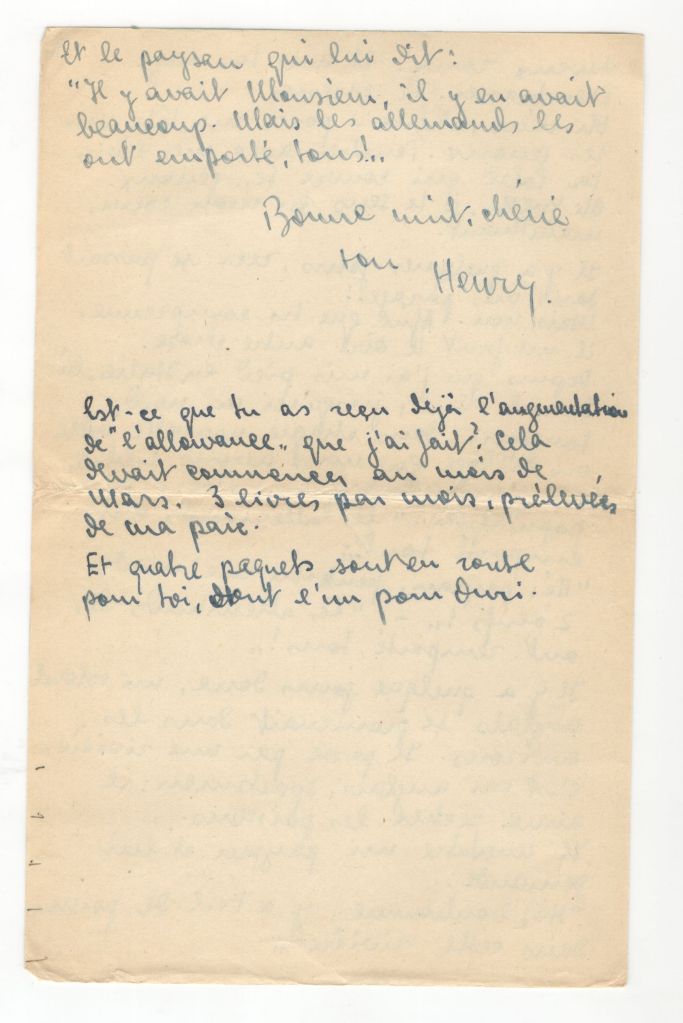 Et le paysan qui lui dit:
"Il y avait Monsieur, il y en avait
beaucoup. Mais les allemands les
ont emporté, tous!..
Bonne nuit, chérie
ton
Henry.
Est-ce que tu as reçu déjà l'augmentation
de "l'allowance" que j'ai fait? Cela
devait commencer au mois de
Mars. 3 livres par mois, prélevées
de ma paie.
Et quatre paquets sont en route
pour toi, dont l'un pour Duri.